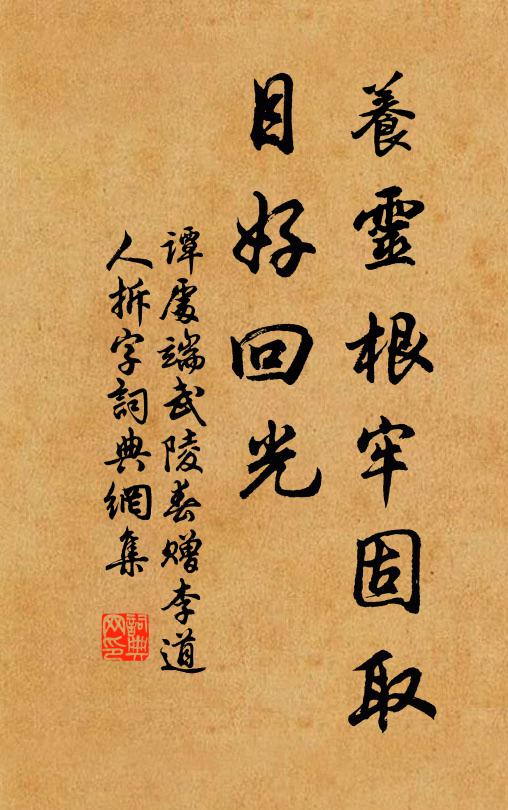 養靈根牢固取
目好回光
谭處端武陵春赠李道
人拆字詞典網集
詞典
网印